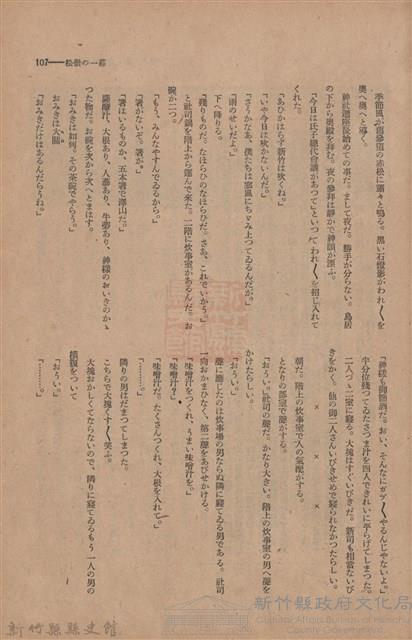 107——松嶺の一幕
季節風が舊參道の赤松に颯々と鳴る。黒い石燈影がわれ〳〵を
奥へ奥へと導く。
神社遷座後始めての事だ。まして夜だ。勝手が分らない。鳥居
の下から奥殿を拜む。夜の參拜は靜かで神韻が漂ふ。
「今日は氏子總代會議があつて」といつてわれ〳〵を招じ入れて
くれた。
「あひかはらず新竹は吹くね。」
「いや今日は吹かないんだ。」
「さうかなあ。僕たちは寒風にちゞみ上つてゐるんだが。」
「雨のせいだよ。」
下へ降りる。
「殘りものだ。なほらひのなほらひだ。さあ、これでいかう」
と社司鍋を階上から運んで來た。二階に炊事室があるんだ。お
碗が二つ。
「もう、みんなやすんでゐるから。」
「箸がないぞ。箸が。」
「箸はいるものか、五本箸で澤山だ。」
薩摩汁、大根あり、人蔘あり、牛蒡あり、神樣のおいきのかゝ
つた物だ。お碗を次から次へとまはす。
「おみきは如何。その茶碗でやらう。」
おみきは大關。
「おみきだけはあるんだらうね。」
「神樣も御晩酒だ。おい、そんなにガブ〳〵やるんじやないよ。」
半分位殘つてゐたさつま汁を四人できれいに平らげてしまつた。
二人づゝ二室に寢る。大塊はすぐいびきだ。新司も相當ないび
きをかく。他の御二人さんいびきせめで寢られなかつたらしい。
× × ×
朝だ。階上の炊事室で人の氣配がする。
となりの部室で聲がする。
「おうい。」社司の聲だ。かなり大きい。階上の炊事室の男へ聲を
かけたらしい。
「おうい。」
聲に應じたのは炊事場の男ならぬ隣に寢てゐる男である。社司
一向おかまひなく、第二聲をあびせかける。
「味噌汁をつくれ、うまい味噌汁を。」
「味噌汁？」
「味噌汁だ。たくさんつくれ、大根を入れて。」
「………。」
隣りの男はだまつてしまつた。
こちらで大塊くす〳〵笑ふ。
大塊おかしくてならないので、隣りに寢てゐるもう一人の男の
橫腹をついて
「おうい。」
「………。」
新竹縣政府文化局
Cultural Affairs Bureau of Hsinchu
新竹縣縣史館